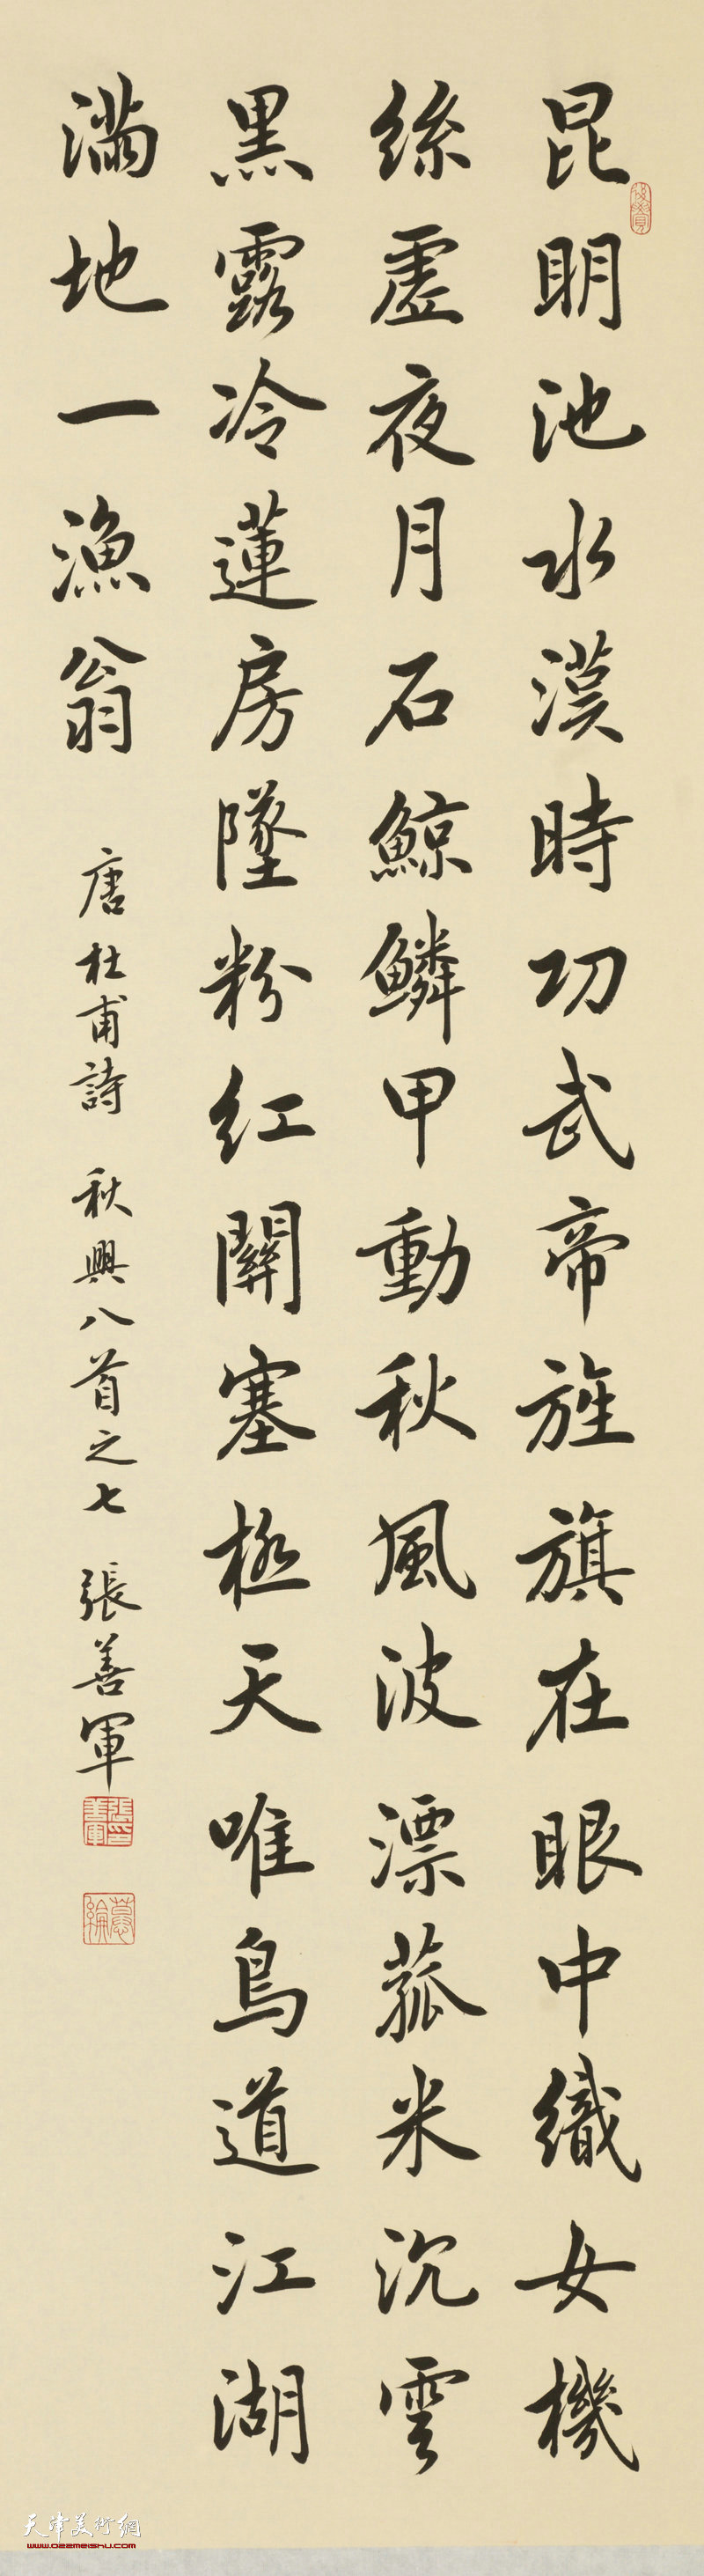 昆明池水漢時功武帝旌旗在眼中織女機
絲虛夜月石鯨鱗甲動秋風波漂菰米沉雲
黑露冷蓮房墜粉紅關塞極天唯鳥道江湖
滿地一漁翁
唐杜甫詩 秋興八首之七 張善軍
張善軍印
天津美術網
www.022meishu.com